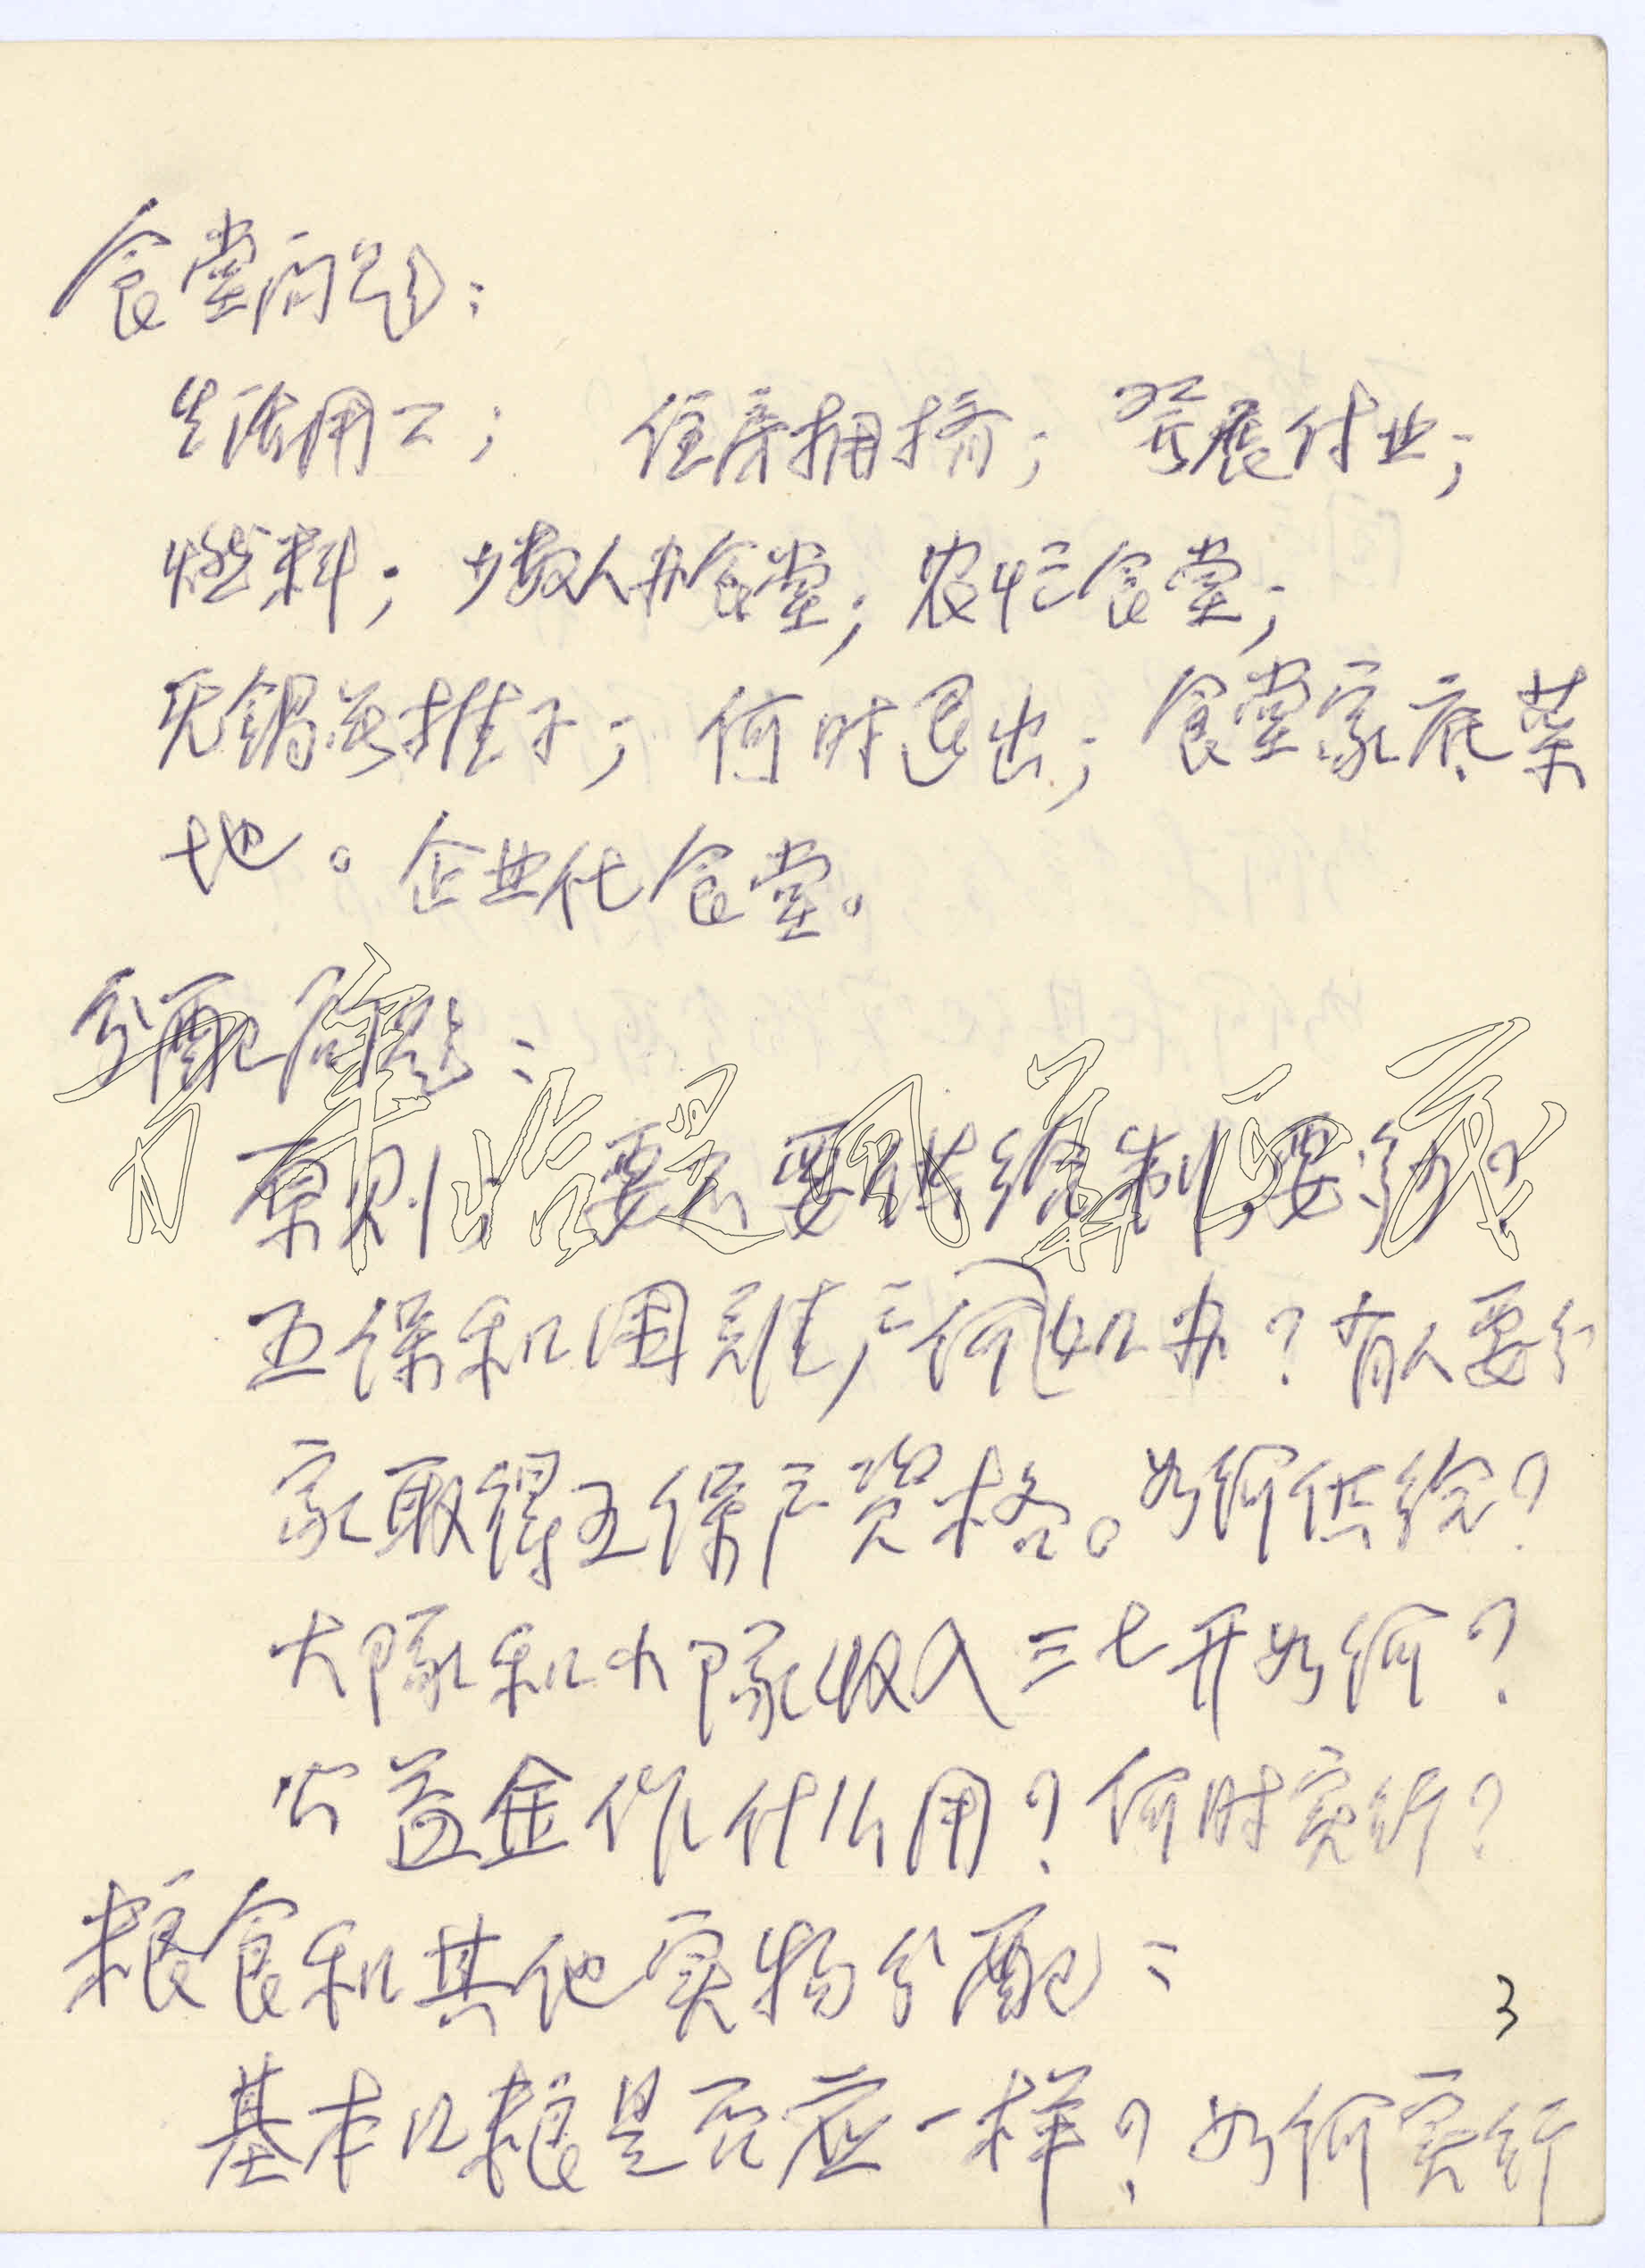 食堂问题：
生活用工； 住房拥挤；发展付业；
燃料；少数人办食堂；农忙食堂；
无锅无推子；何时退出；食堂家底菜
地。企业化食堂。
分配问题：
原则 要不要供给制 要
五保和困难户如何办？有人要分
家取得五保户资格。如何供给？
大队和小队收入三七开如何？
公益金作什么用？何时实行？
粮食和其他实物分配：
3
基本口粮是否应一样？如何实行